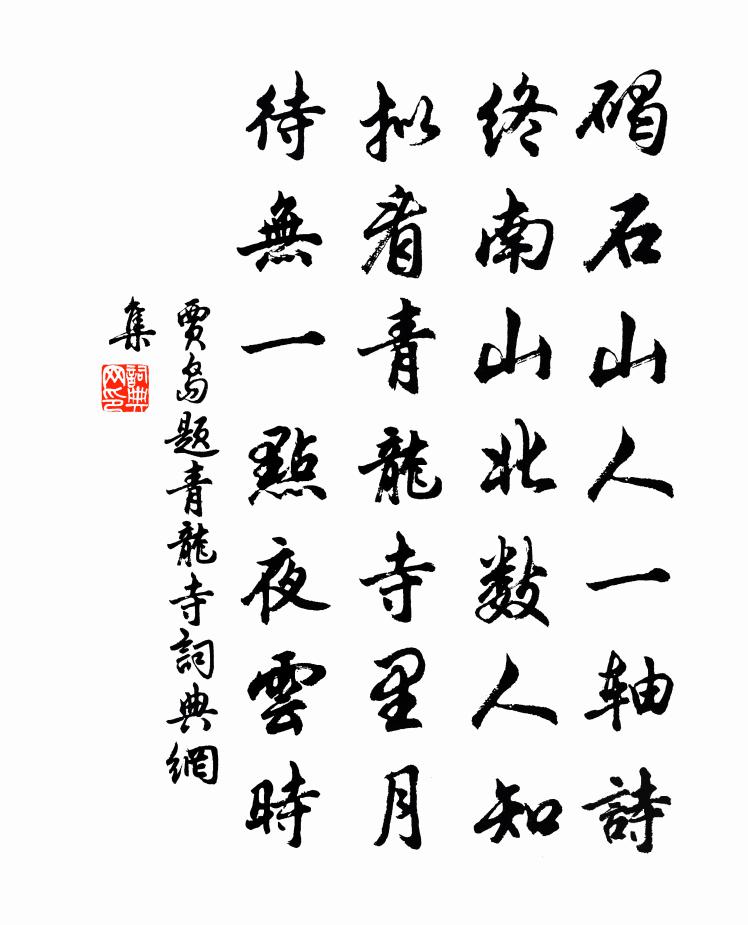 碣石山人一轴詩
终南山北数人知
拟看青龍寺里月
待無一點夜雲時
賈島题青龍寺詞典網
集
詞典
网印